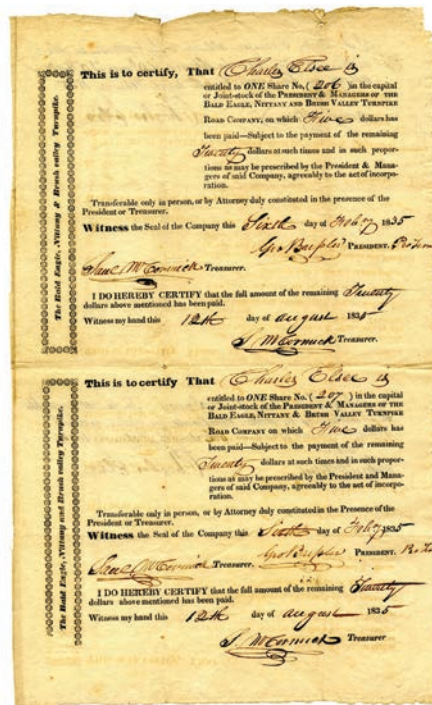 The Bald Eagle, Nittany & Brush valley Turnpike.
This is to certify, That Charles Elsee is
entitled to ONE Share No. (206) in the capital
or Joint-stock of the PRESIDENT & MANAGERS OF THE
BALD EAGLE, NITTANY AND BRUSH VALLEY TURNPIKE
ROAD COMPANY, on which Five dollars has
been paid—Subject to the payment of the remaining
Twenty dollars at such times and in such propor-
tions as may be prescribed by the President & Mana-
gers of said Company, agreeably to the act of incorpo-
ration.
Transferable only in person, or by Attorney duly constituted in the presence of the
President or Treasurer.
Witness the Seal of the Company this Sixth day of Feby 1835
Geo PRESIDENT. Pro Tem
Saml McCormick Treasurer.
I DO HEREBY CERTIFY that the full amount of the remaining Twenty
dollars above mentioned has been paid.
Witness my hand this 12th day of august 1835
S. McCormick Treasurer.
The Bald Eagle, Nittany and Brush valley Turnpike.
This is to certify That Charles Elsee is
entitled to ONE Share No. (207) in the capital
or Joint-stock of the PRESIDENT & MANAGERS OF THE
BALD EAGLE, NITTANY & BRUSH VALLEY TURNPIKE
ROAD COMPANY on which Five dollars has
been paid—Subject to the payment of the remaining
Twenty dollars at such times and in such propor-
tions as may be prescribed by the President and Mana-
gers of said Company, agreeably to the act of incorpo-
ration.
Transferable only in person, or by Attorney duly constituted in the Presence of the
President or Treasurer.
Witness the Seal of the Company this Sixth day of Feby 1835
Geo PRESIDENT. Pro Tem
Saml McCormick Treasurer.
I DO HEREBY CERTIFY that the full amount of the remaining Twenty
dollars above mentioned has been paid.
Witness my hand this 12th day of august 1835
S. McCormick Treasurer